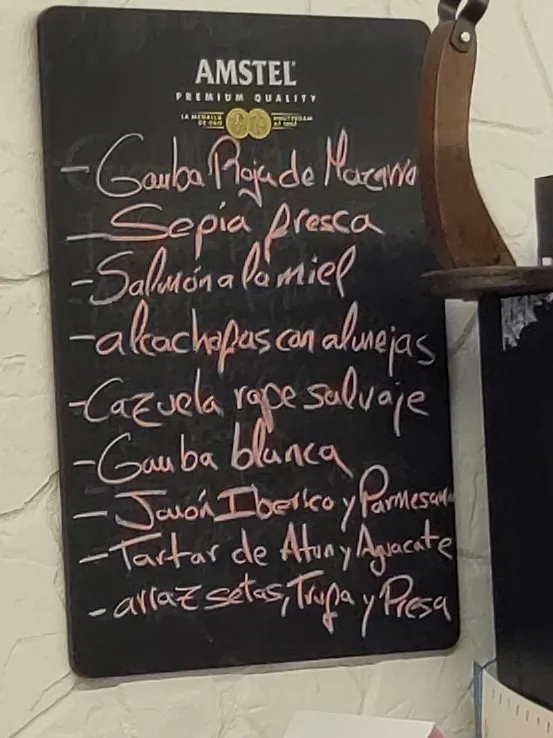 AMSTEL
PREMIUM QUALITY
LA MEDALLA DE ORO AMSTERDAM
- Gamba Roja de Mazarrón
- Sepia fresca
- Salmón a la miel
- alcachofas con almejas
- Cazuela rape salvaje
- Gamba blanca
- Jamón Iberico y Parmesano
- Tartar de Atun y Aguacate
- arroz setas, Trufa y Presa